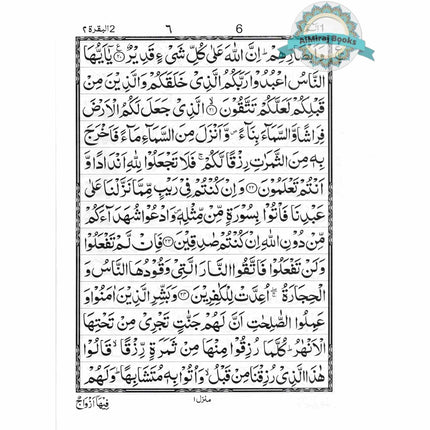 البقرة ٢ 2
٦
6
AlMiraj Books
وَاَبْصَارِهِمْ ؕ اِنَّ اللّٰهَ عَلٰى كُلِّ شَیْءٍ قَدِیْرٌ ﴿۲۰﴾ یٰۤاَیُّهَا
النَّاسُ اعْبُدُوْا رَبَّكُمُ الَّذِیْ خَلَقَكُمْ وَالَّذِیْنَ مِنْ
قَبْلِكُمْ لَعَلَّكُمْ تَتَّقُوْنَ ﴿۲۱﴾ الَّذِیْ جَعَلَ لَكُمُ الْاَرْضَ
فِرَاشًا وَّالسَّمَآءَ بِنَآءً ۪ وَّاَنْزَلَ مِنَ السَّمَآءِ مَآءً فَاَخْرَجَ
بِهٖ مِنَ الثَّمَرٰتِ رِزْقًا لَّكُمْ ۚ فَلَا تَجْعَلُوْا لِلّٰهِ اَنْدَادًا وَّ
اَنْتُمْ تَعْلَمُوْنَ ﴿۲۲﴾ وَاِنْ كُنْتُمْ فِیْ رَیْبٍ مِّمَّا نَزَّلْنَا عَلٰى
عَبْدِنَا فَاْتُوْا بِسُوْرَةٍ مِّنْ مِّثْلِهٖ ۪ وَادْعُوْا شُهَدَآءَكُمْ
مِّنْ دُوْنِ اللّٰهِ اِنْ كُنْتُمْ صٰدِقِیْنَ ﴿۲۳﴾ فَاِنْ لَّمْ تَفْعَلُوْا
وَلَنْ تَفْعَلُوْا فَاتَّقُوا النَّارَ الَّتِیْ وَقُوْدُهَا النَّاسُ وَ
الْحِجَارَةُ ۖۚ اُعِدَّتْ لِلْكٰفِرِیْنَ ﴿۲۴﴾ وَبَشِّرِ الَّذِیْنَ اٰمَنُوْا وَ
عَمِلُوا الصّٰلِحٰتِ اَنَّ لَهُمْ جَنّٰتٍ تَجْرِیْ مِنْ تَحْتِهَا
الْاَنْهٰرُ ؕ كُلَّمَا رُزِقُوْا مِنْهَا مِنْ ثَمَرَةٍ رِّزْقًا ۙ قَالُوْا
هٰذَا الَّذِیْ رُزِقْنَا مِنْ قَبْلُ ۙ وَاُتُوْا بِهٖ مُتَشَابِهًا ؕ وَلَهُمْ
منزل ١
فِیْهَاۤ اَزْوَاجٌ